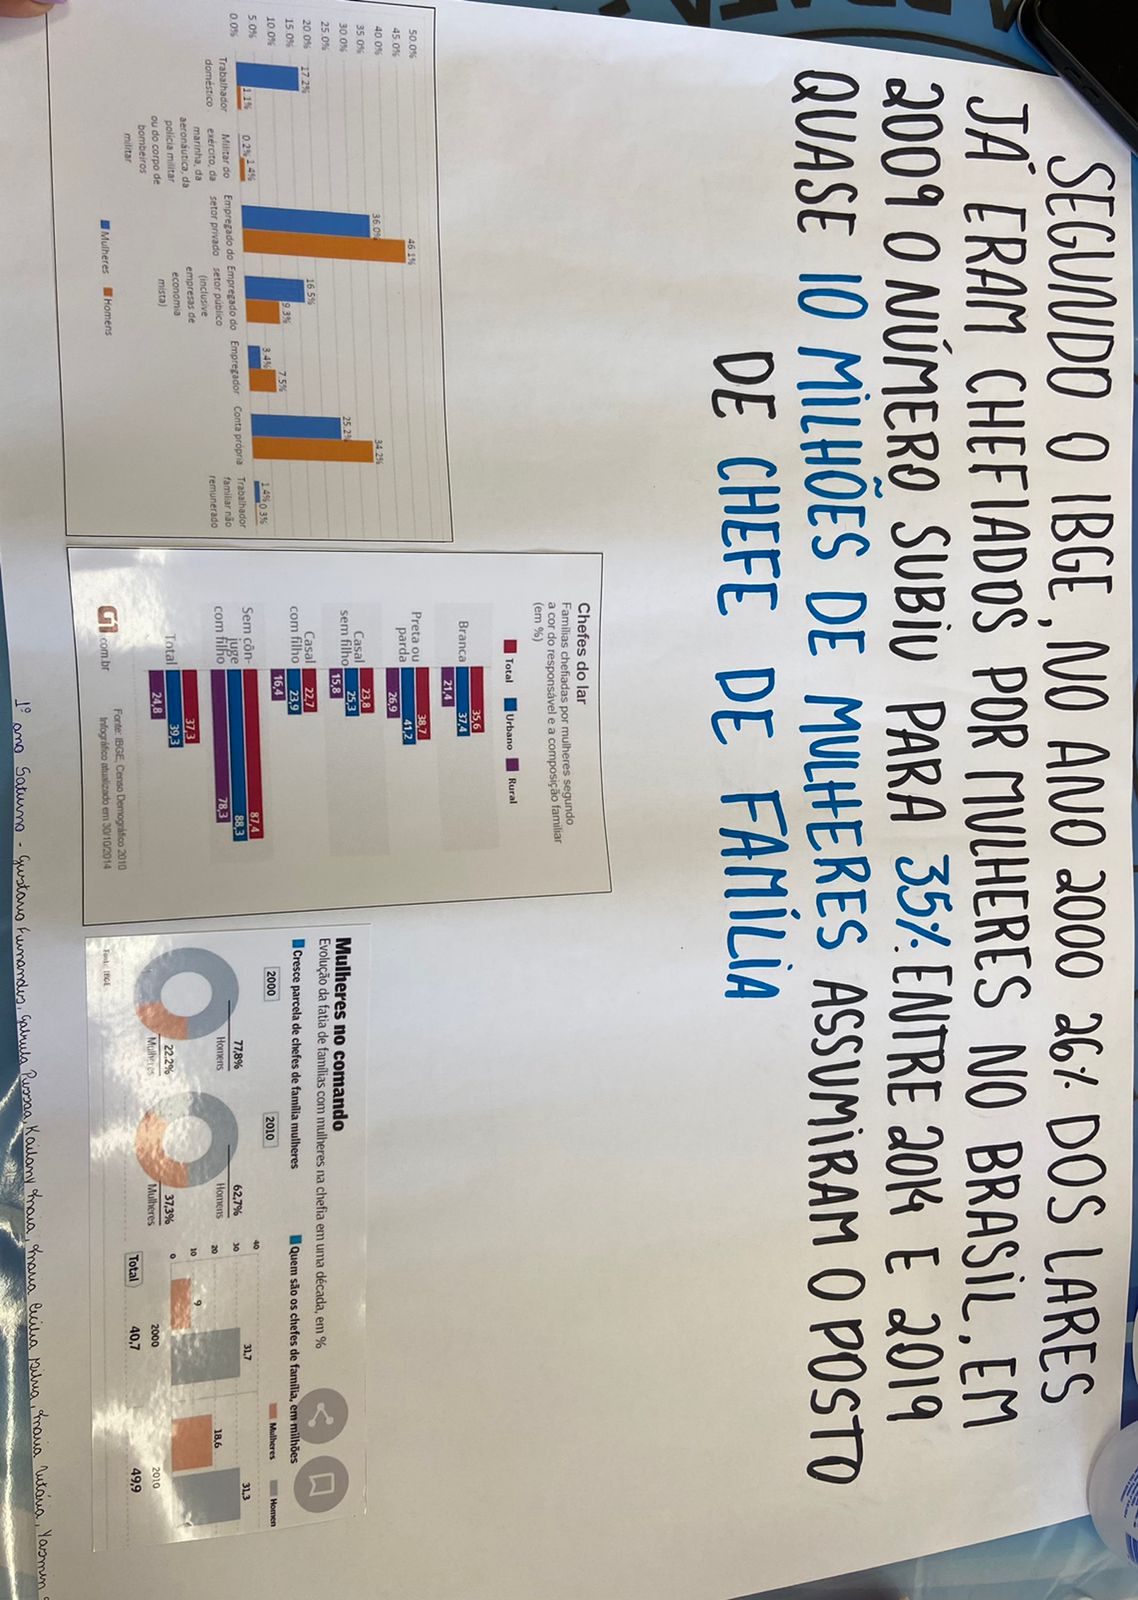 SEGUNDO O IBGE, NO ANO 2000 26% DOS LARES
JÁ ERAM CHEFIADOS POR MULHERES NO BRASIL, EM
2009 O NÚMERO SUBIU PARA 35% ENTRE 2014 E 2019
QUASE 10 MILHÕES DE MULHERES ASSUMIRAM O POSTO
DE CHEFE DE FAMÍLIA
50.0%
45.0%
40.0%
35.0%
30.0%
25.0%
20.0%
15.0%
10.0%
5.0%
0.0%
17.2%
1.1%
0.2%
1.4%
36.0%
46.1%
16.5%
9.3%
3.4%
7.5%
25.2%
34.2%
1.4%
0.3%
Trabalhador
doméstico
Militar do
exército, da
marinha, da
aeronáutica, da
polícia militar
ou do corpo de
bombeiros
militar
Empregado do
setor privado
Empregado do
setor público
(inclusive
empresas de
economia
mista)
Empregador
Conta própria
Trabalhador
familiar não
remunerado
Mulheres Homens
Chefes do lar
Famílias chefiadas por mulheres segundo
a cor do responsável e a composição familiar
(em %)
Total Urbano Rural
Branca
35,6
37,4
21,4
Preta ou
parda
38,7
41,2
26,9
Casal
sem filho
23,8
25,3
15,8
Casal
com filho
22,7
23,9
16,4
Sem côn-
juge
com filho
87,4
88,3
78,3
Total
37,3
39,3
24,8
Fonte: IBGE, Censo Demográfico 2010
Infográfico atualizado em 30/10/2014
G1 .com.br
Mulheres no comando
Evolução da fatia de famílias com mulheres na chefia em uma década, em %
Cresce parcela de chefes de família mulheres
2000
77,8%
Homens
22,2%
Mulheres
2010
62,7%
Homens
37,3%
Mulheres
Quem são os chefes de família, em milhões
Mulheres Homen
40
30
20
10
0
9
31,7
18,6
31,3
2000 2010
Total 40,7 49,9
Fonte: IBGE
1º ano Saturno - Gustavo Fernandes, Gabriela Pessoa, Kailany Maia, Maria Cecília Silva, Maria Vitória, Yasmin